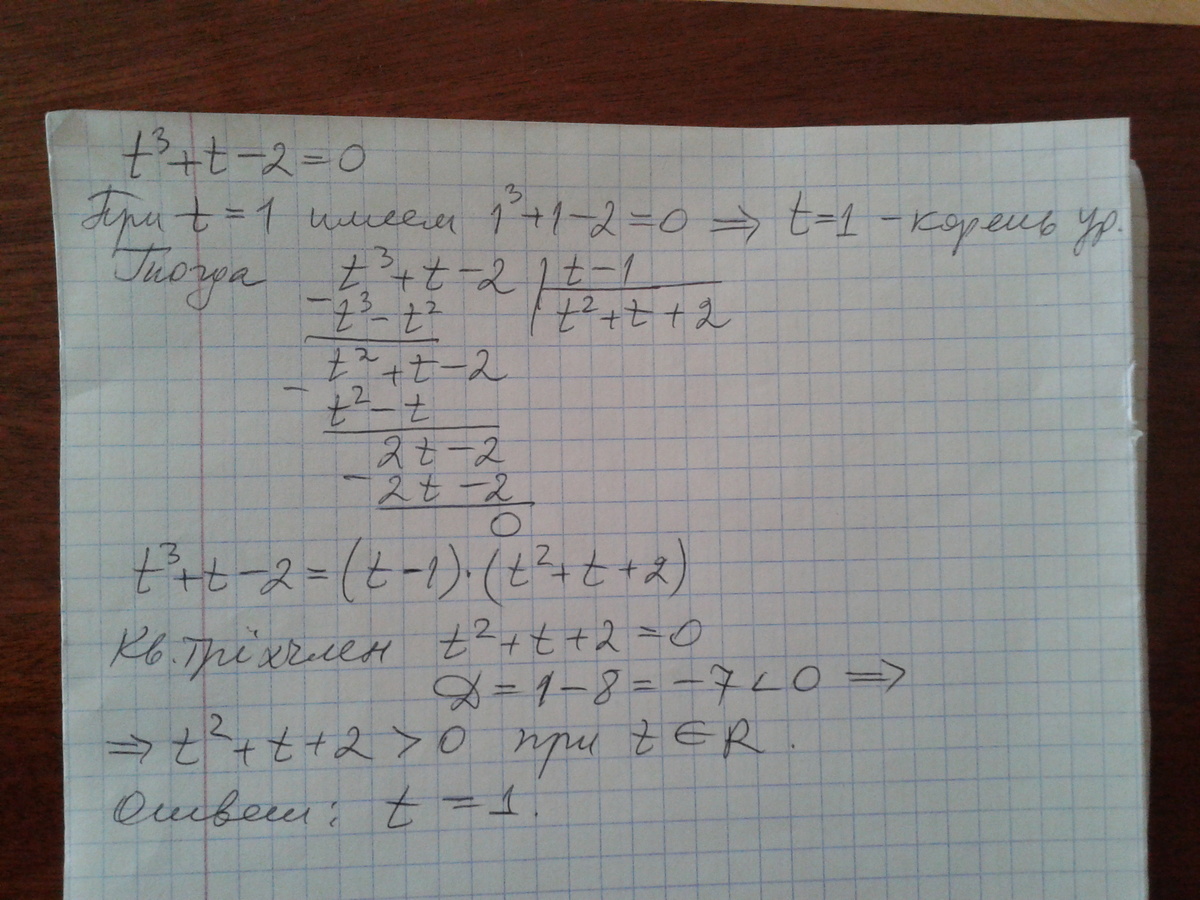 t³+t-2=0
При t=1 имеем 1³+1-2=0 ⇒ t=1 - корень ур.
Тогда t³+t-2 | t-1
- t³-t² | t²+t+2
t²+t-2
- t²-t
2t-2
- 2t-2
0
t³+t-2=(t-1)·(t²+t+2)
Кв. трiхчлен t²+t+2=0
D=1-8=-7<0 ⇒
⇒ t²+t+2>0 при t∈R.
Ответ: t=1.